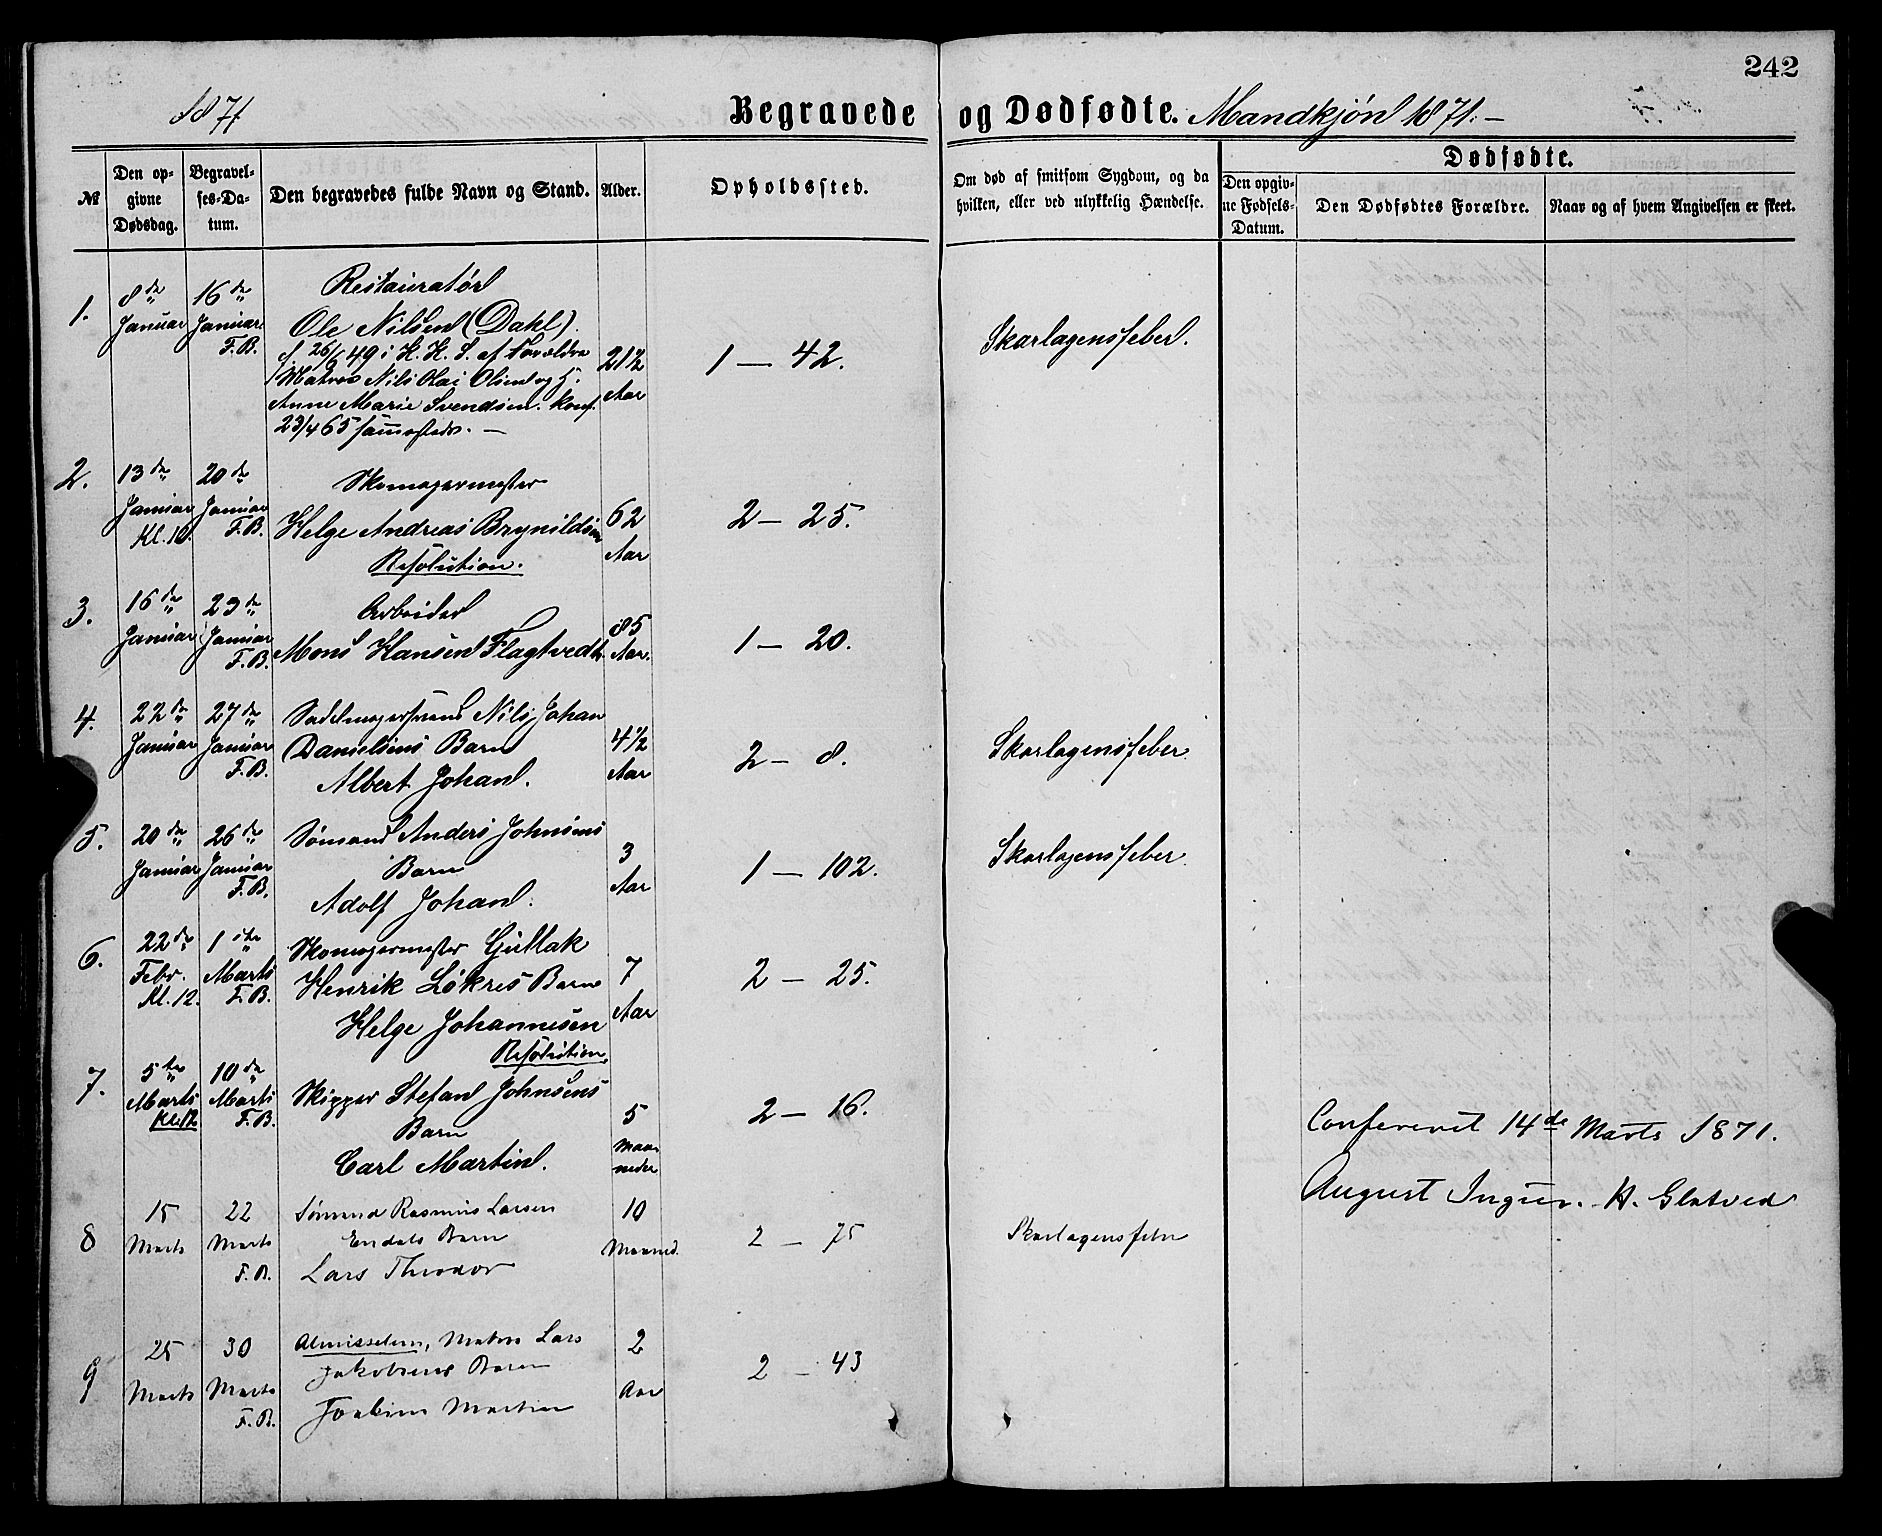 242
1871
Begravede og Dødfødte. Mandkjön 1871.—
№
Den opgivne Dødsdag.
Begravelses-Datum.
Den begravedes fulde Navn og Stand.
Alder.
Opholdssted.
Om død af smitsom Sygdom, og da hvilken, eller ved ulykkelig Hændelse.
Dødfødte.
Den opgivne Fødsels-Datum.
Den Dødfødtes Forældre.
Naar og af hvem Angivelsen er skeet.
1.
8de Januar
16de Januar F.B.
Restauratør
Ole Nilsen (Dahl).
f. 26/6 49 i K. K. S. af Forældre
Matros Nils Olai Olsen og H.
Anne Marie Svendsen. Konf.
23/4 65 sammesteds. —
21½ Aar
1 — 42.
Skarlagensfeber.
2.
13de Januar Kl. 12.
20de Januar F.B.
Skomagermester
Helge Andreas Brynildsen
Resolution.
62 Aar
2 — 25.
3.
16de Januar
23de Januar F.B.
Arbeider
Mons Hansen Flagtvedt
85 Aar.
1 — 20.
4.
22de Januar
27de Januar F.B.
Sadelmagersvend Nils Johan
Danielsens Barn
Albert Johan.
4½ Aar
2 — 8.
Skarlagensfeber
5.
20de Januar
26de Januar F.B.
Sømand Anders Johnsens
Barn
Adolf Johan.
3 Aar
1 — 102.
Skarlagensfeber
6.
22de Febr. Kl. 12.
1ste Marts F.B.
Skomagermester Guttak
Henrik Lökres Barn
Helge Johannesen
Resolution.
7 Aar
2 — 25.
7.
5te Marts Kl. 12
10de Marts F.B.
Skipper Stefan Johnsens
Barn
Carl Martin.
5 Maaneder
2 — 16.
Confereret 14de Marts 1871.
August H. Glatved
8
15 Marts
22 Marts F.B.
Sømand Rasmus Larsen
Barn
Lars Theodor
10 Maaned.
2 — 75
Skarlagensfeber
9
25 Marts
30 Marts F.B.
Matros Lars
Jakobsens Barn
Martin
2 Aar
2 — 43